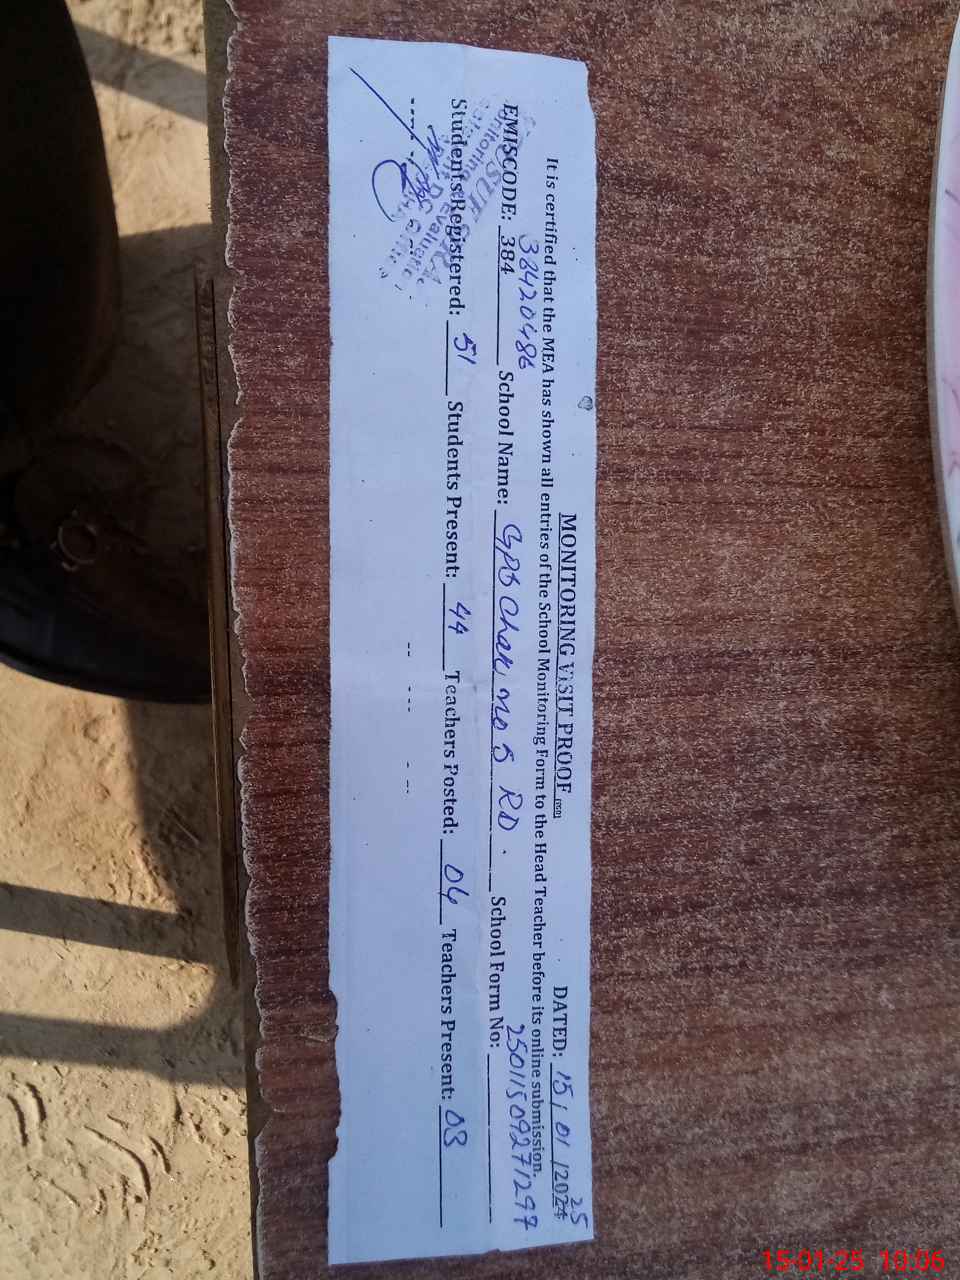 MONITORING VISIT PROOF
DATED: 15/01/2024 25
It is certified that the MEA has shown all entries of the School Monitoring Form to the Head Teacher before its online submission.
38420486
EMISCODE: 384 School Name: GPS Chak no 5 RD. School Form No: 25011509271297
Students Registered: 51 Students Present: 44 Teachers Posted: 04 Teachers Present: 03
15-01-25 10:06